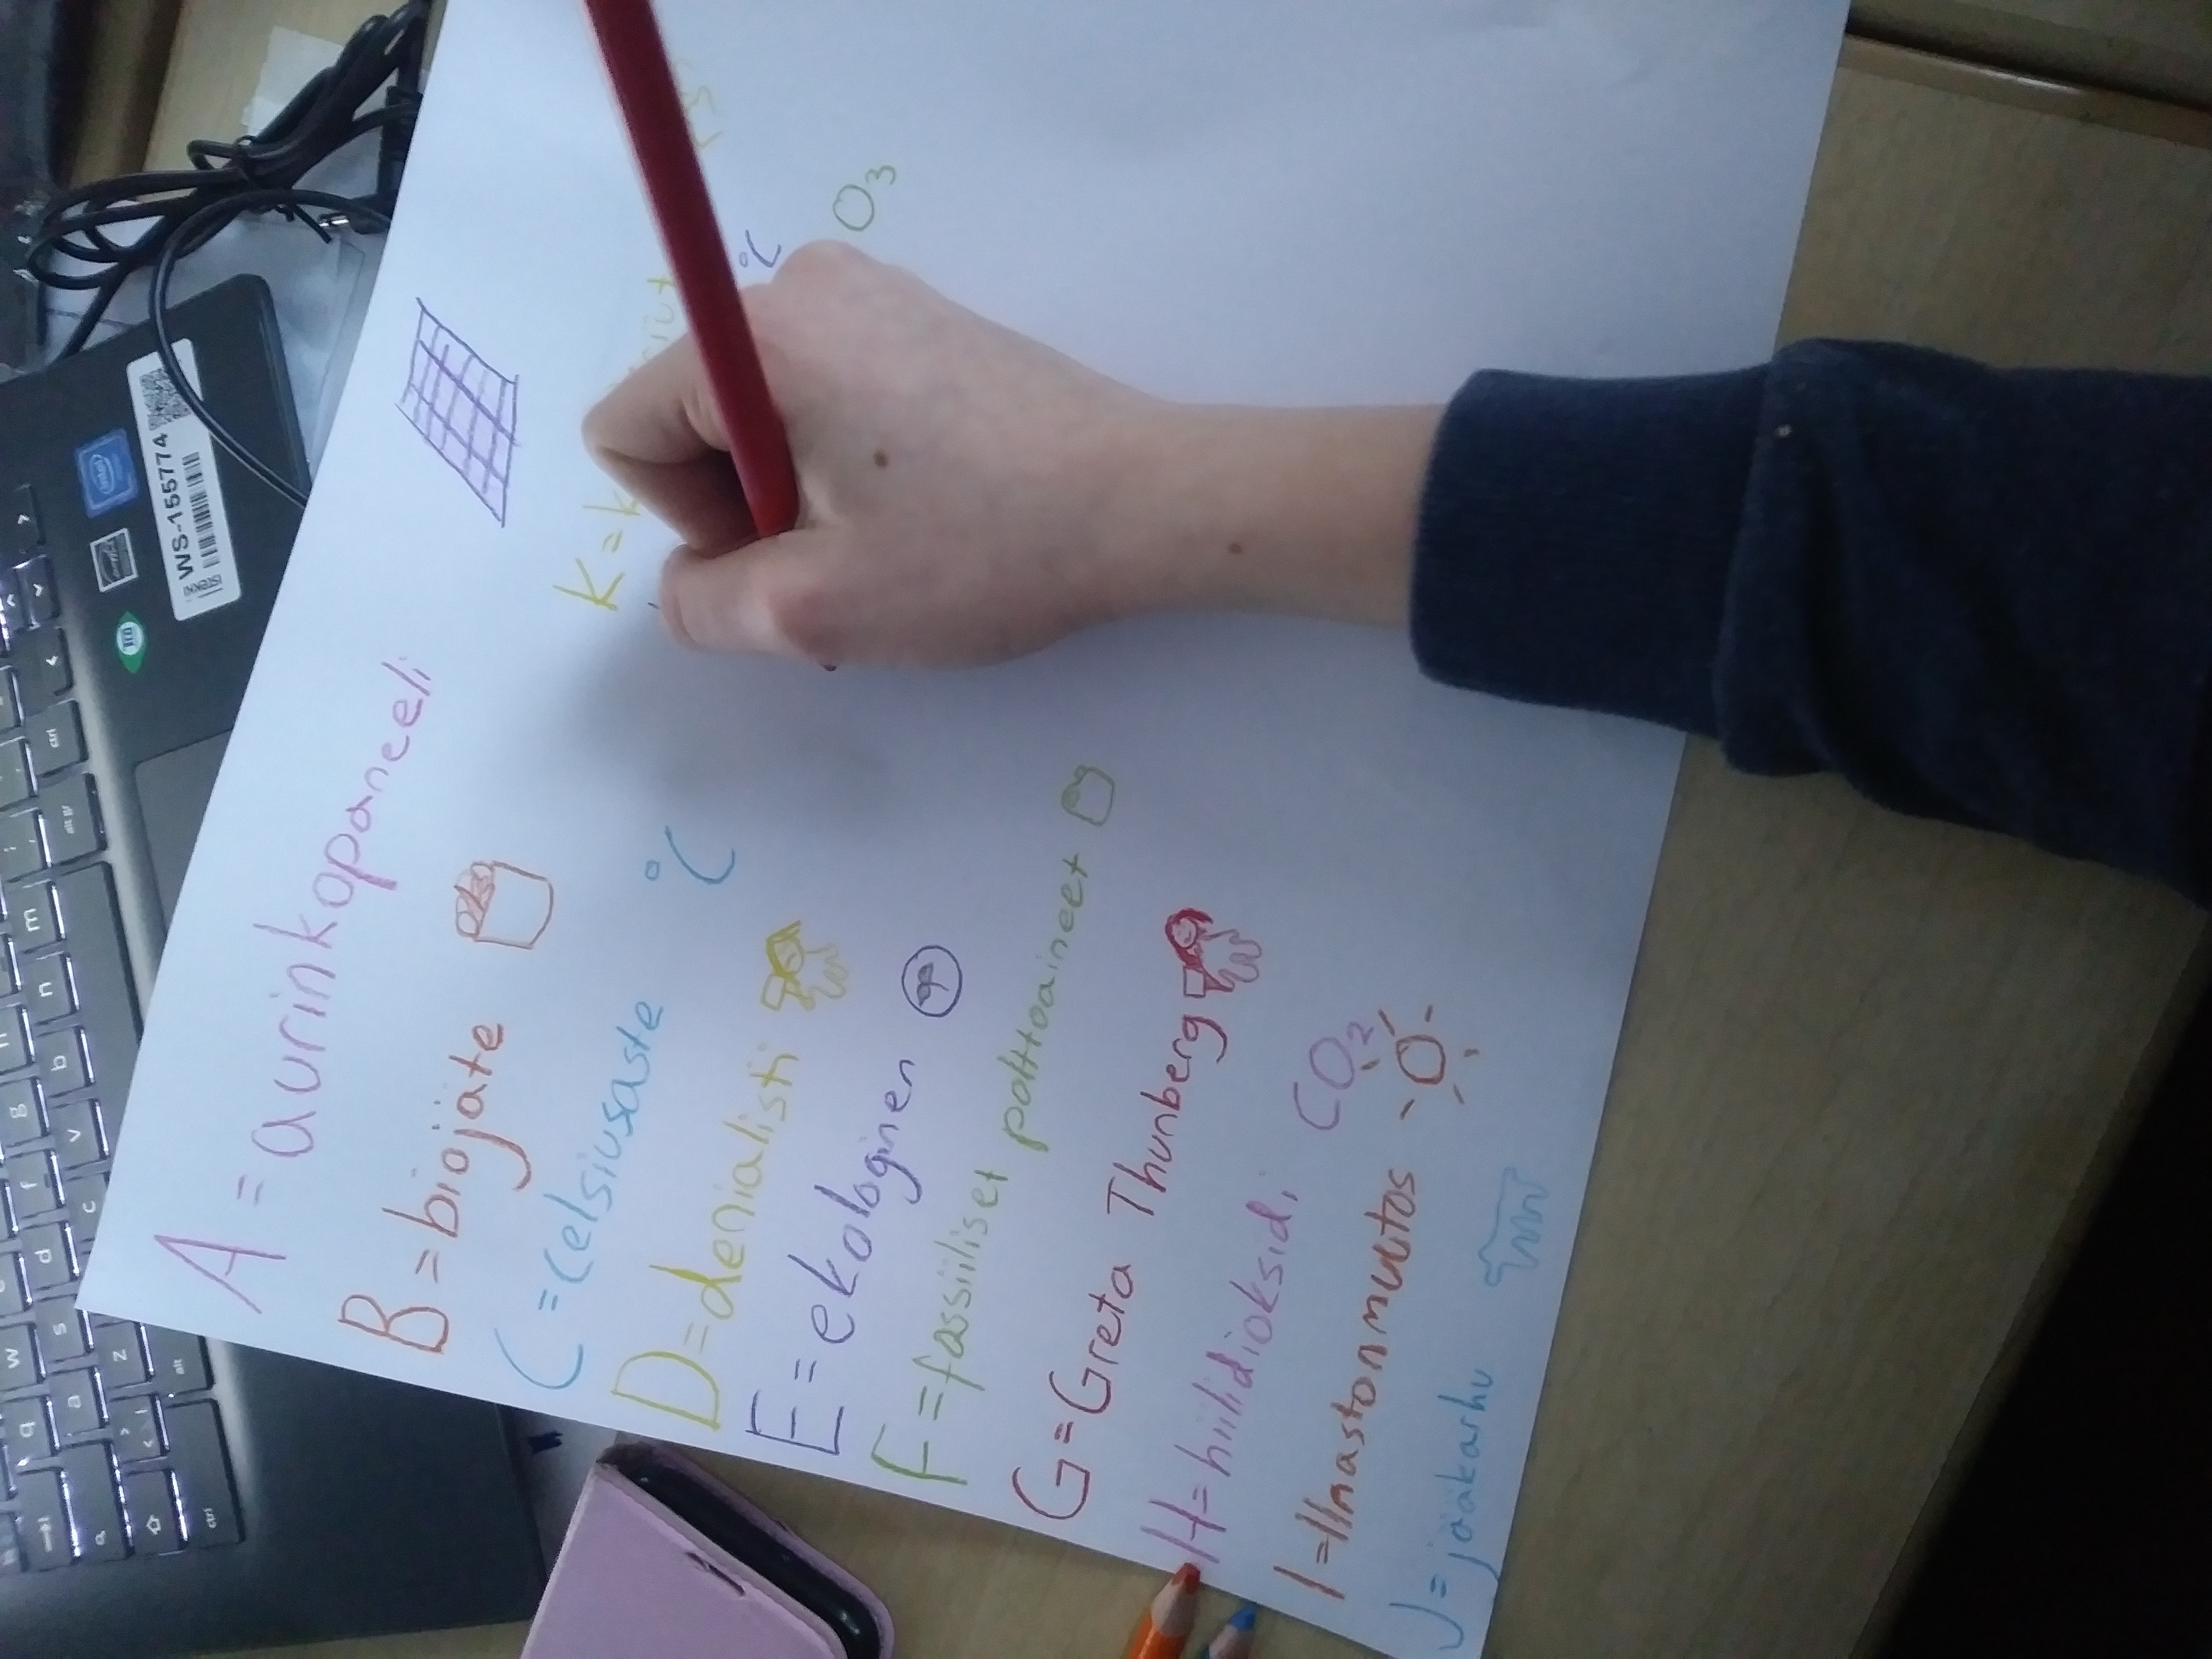 A = aurinkopaneeli
B = biojäte
C = celsiusaste °C
D = denialisti
E = ekologinen
F = fossiiliset polttoaineet
G = Greta Thunberg
H = hiilidioksidi CO₂
I = Ilmastonmuutos
J = jääkarhu
K = k
°C
O₃
WS-155774
intel